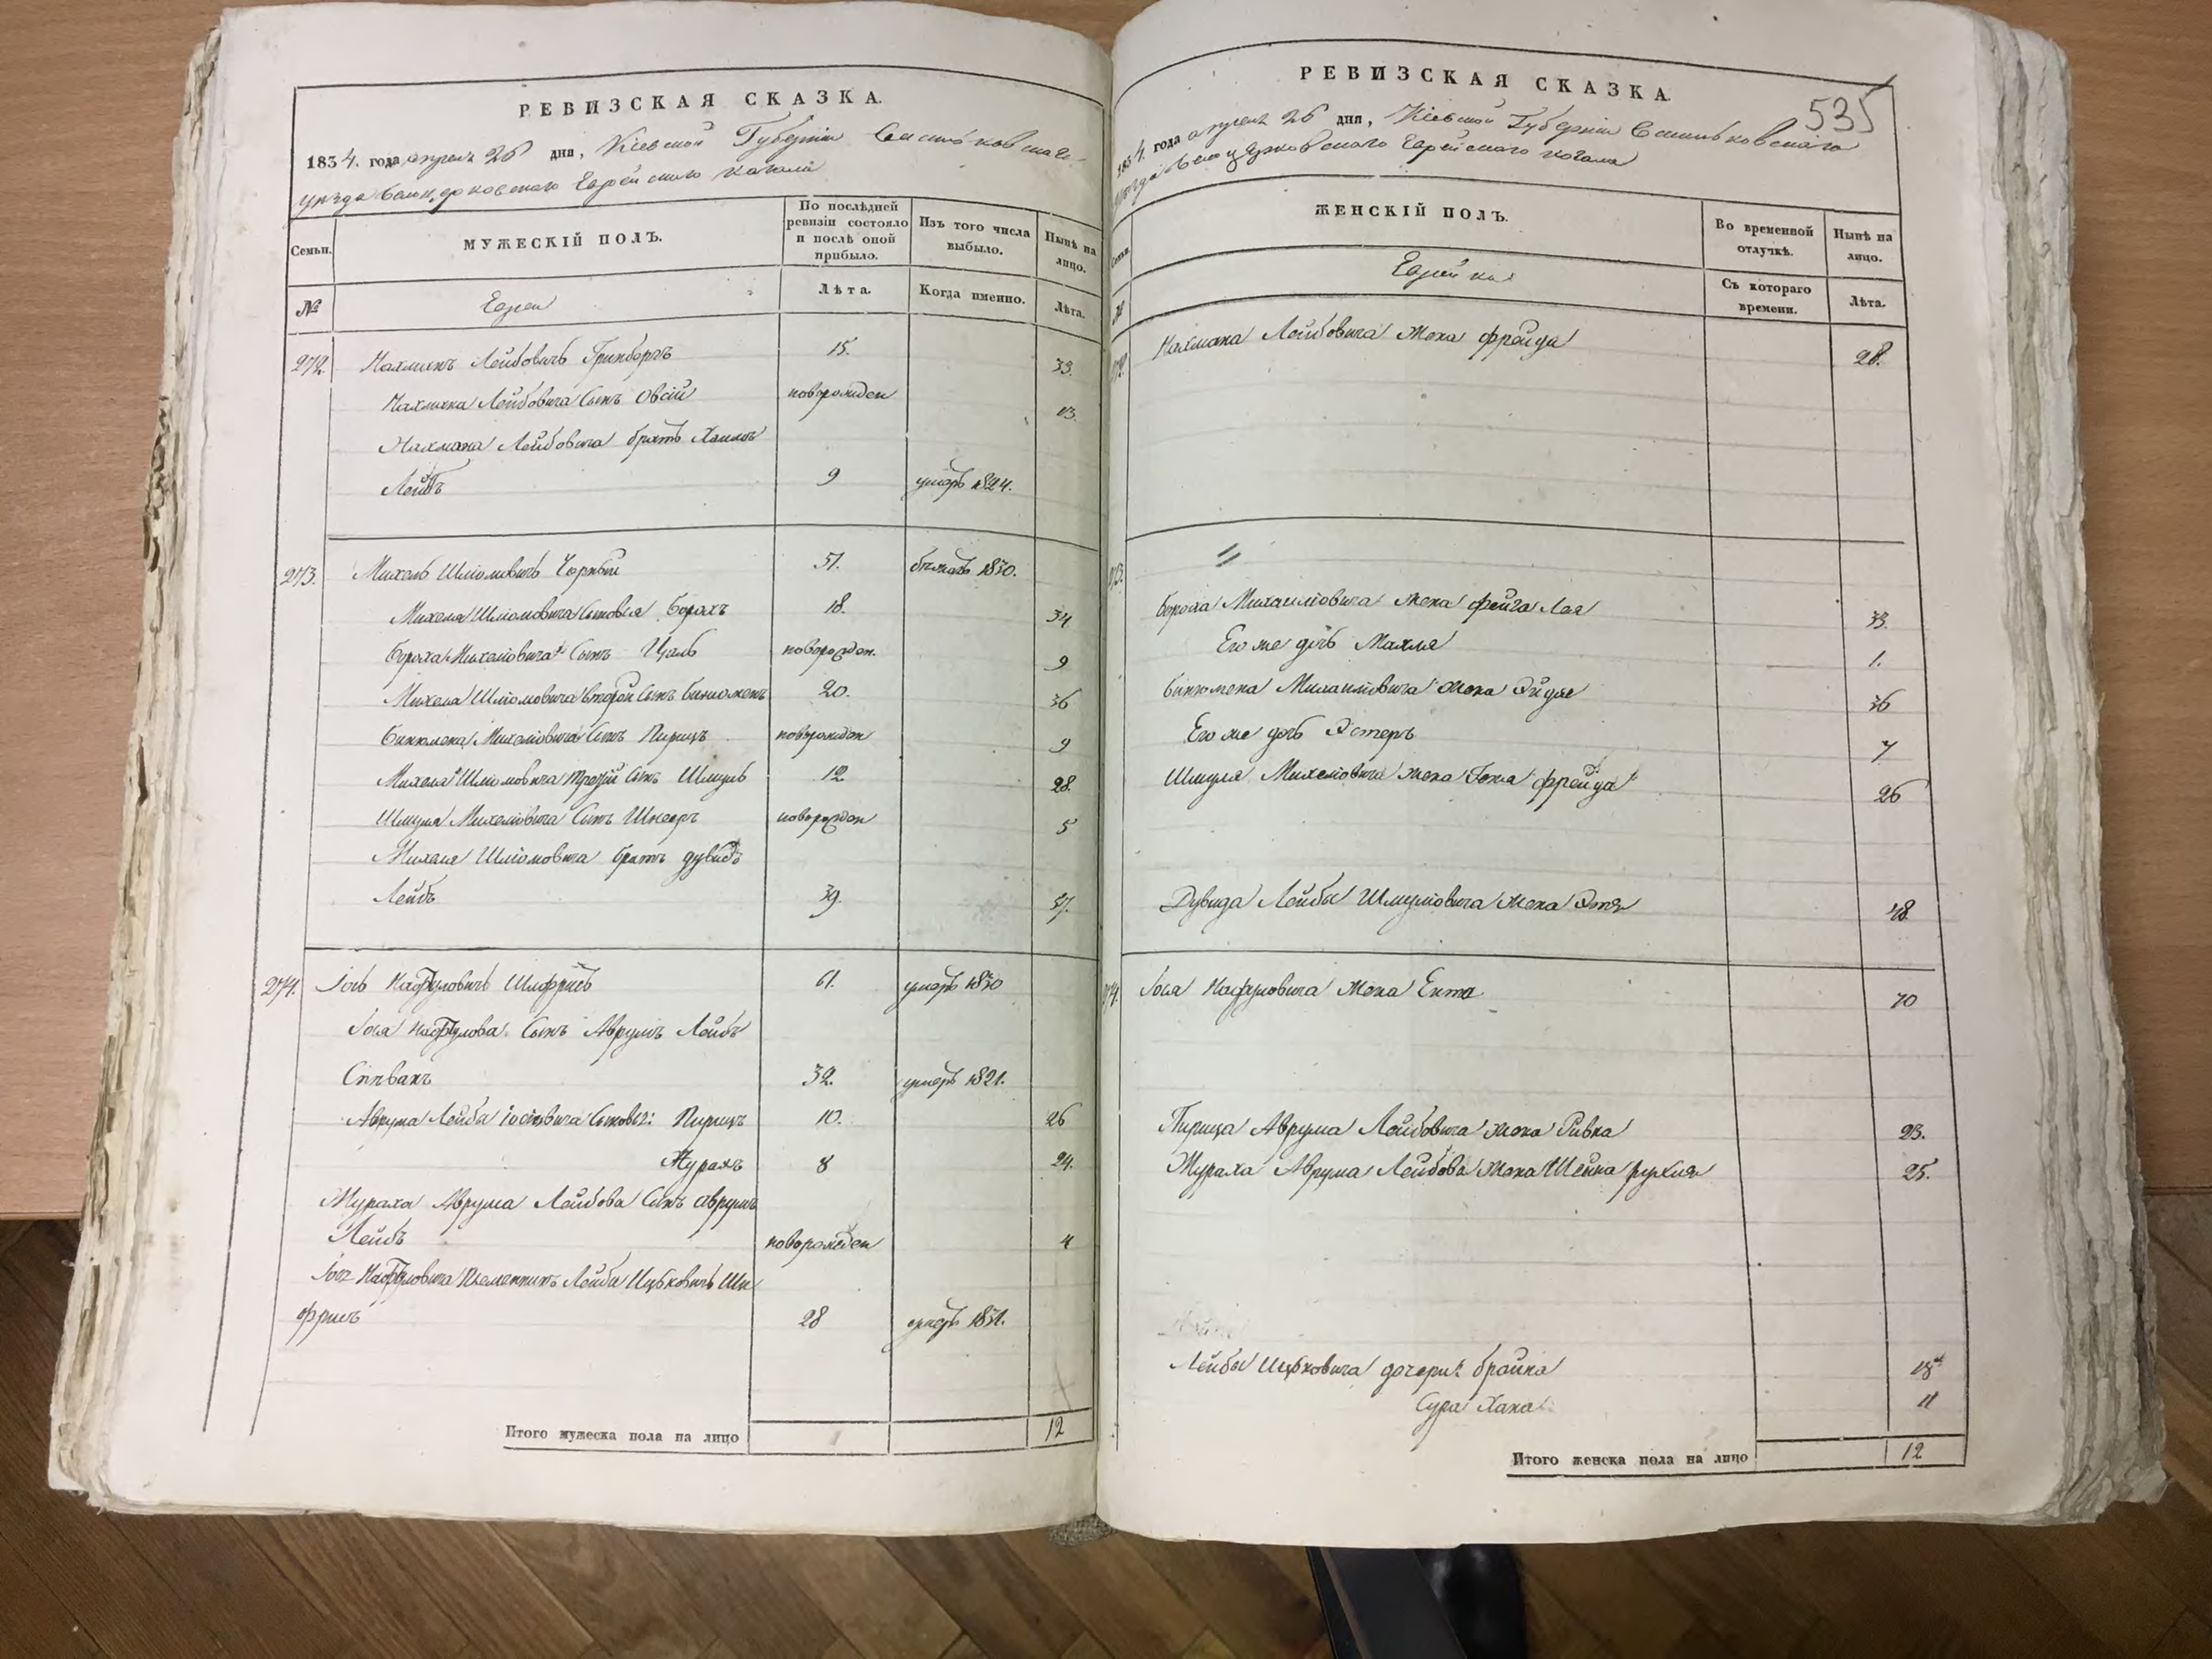 РЕВИЗСКАЯ СКАЗКА.
1834. года апреля 26 дня, Кіевской Губерніи Васильковскаго
уезда Белоцерковскаго Еврейскаго кагала
Семьи.
МУЖЕСКІЙ ПОЛЪ.
По послѣдней ревизіи состояло и послѣ оной прибыло.
Изъ того числа выбыло.
Нынѣ на лицо.
№
Евреи
Лѣта.
Когда именно.
Лѣта.
272. Нахманъ Лейбовичъ Гринбергъ 15. 33.
Нахмана Лейбовича Сынъ Овсій новорожден 13.
Нахмана Лейбовича братъ Хаимъ
Лейбъ 9 умеръ 1824.
273. Михель Шліомовичъ Чорный 51. бежалъ 1830.
Михеля Шліомовича Сыновья Борахъ 18. 34
Бороха Михеліовича Сынъ Цаль новорожден. 9
Михеля Шліомовича второй Сынъ Биниоменъ 20. 36
Биниомена Михеліовича Сынъ Пирицъ новорожден 9
Михеля Шліомовича третій Сынъ Шмуль 12 28.
Шмуля Михеліовича Сынъ Шнееръ новорожден 5
Михеля Шліомовича братъ Дувидъ
Лейбъ 39. 57.
274. Іось Нафтуловичъ Шифринъ 61. умеръ 1830
Іося Нафтулова Сынъ Аврумъ Лейбъ
Спѣвакъ 32. умеръ 1821.
Аврума Лейба Іосіовича Сыновья: Пирицъ 10. 26
Журахъ 8 24.
Жураха Аврума Лейбова Сынъ Аврумъ
Лейбъ новорожден 4
Іося Нафтуловича Племенникъ Лейба Ицковичъ Ши
фринъ 28 умеръ 1831.
Итого мужеска пола на лицо 12
РЕВИЗСКАЯ СКАЗКА.
535
1834. года апреля 26 дня, Кіевской Губерніи Васильковскаго
уезда Белоцерковскаго Еврейскаго кагала
Семьи.
ЖЕНСКІЙ ПОЛЪ.
Во временной отлучкѣ.
Нынѣ на лицо.
№
Еврейки
Съ котораго времени.
Лѣта.
272. Нахмана Лейбовича жена Фрейда 28.
273. //
Бороха Михаиліовича жена Фейга Лея 33.
Его же дочь Махля 1.
Биниомена Михаиліовича жена Эйдля 36
Его же дочь Эстеръ 7
Шмуля Михеліовича жена Геня Фрейда 26
Дувида Лейбы Шмуліовича жена Этя 48.
274. Іося Нафтуловича жена Ента 70
Пирица Аврума Лейбовича жена Ривка 23.
Жураха Аврума Лейбова жена Шейна Рухля 25.
Лейбы Ицковича дочери: Брайна 18
Сура Хана 11
Итого женска пола на лицо 12